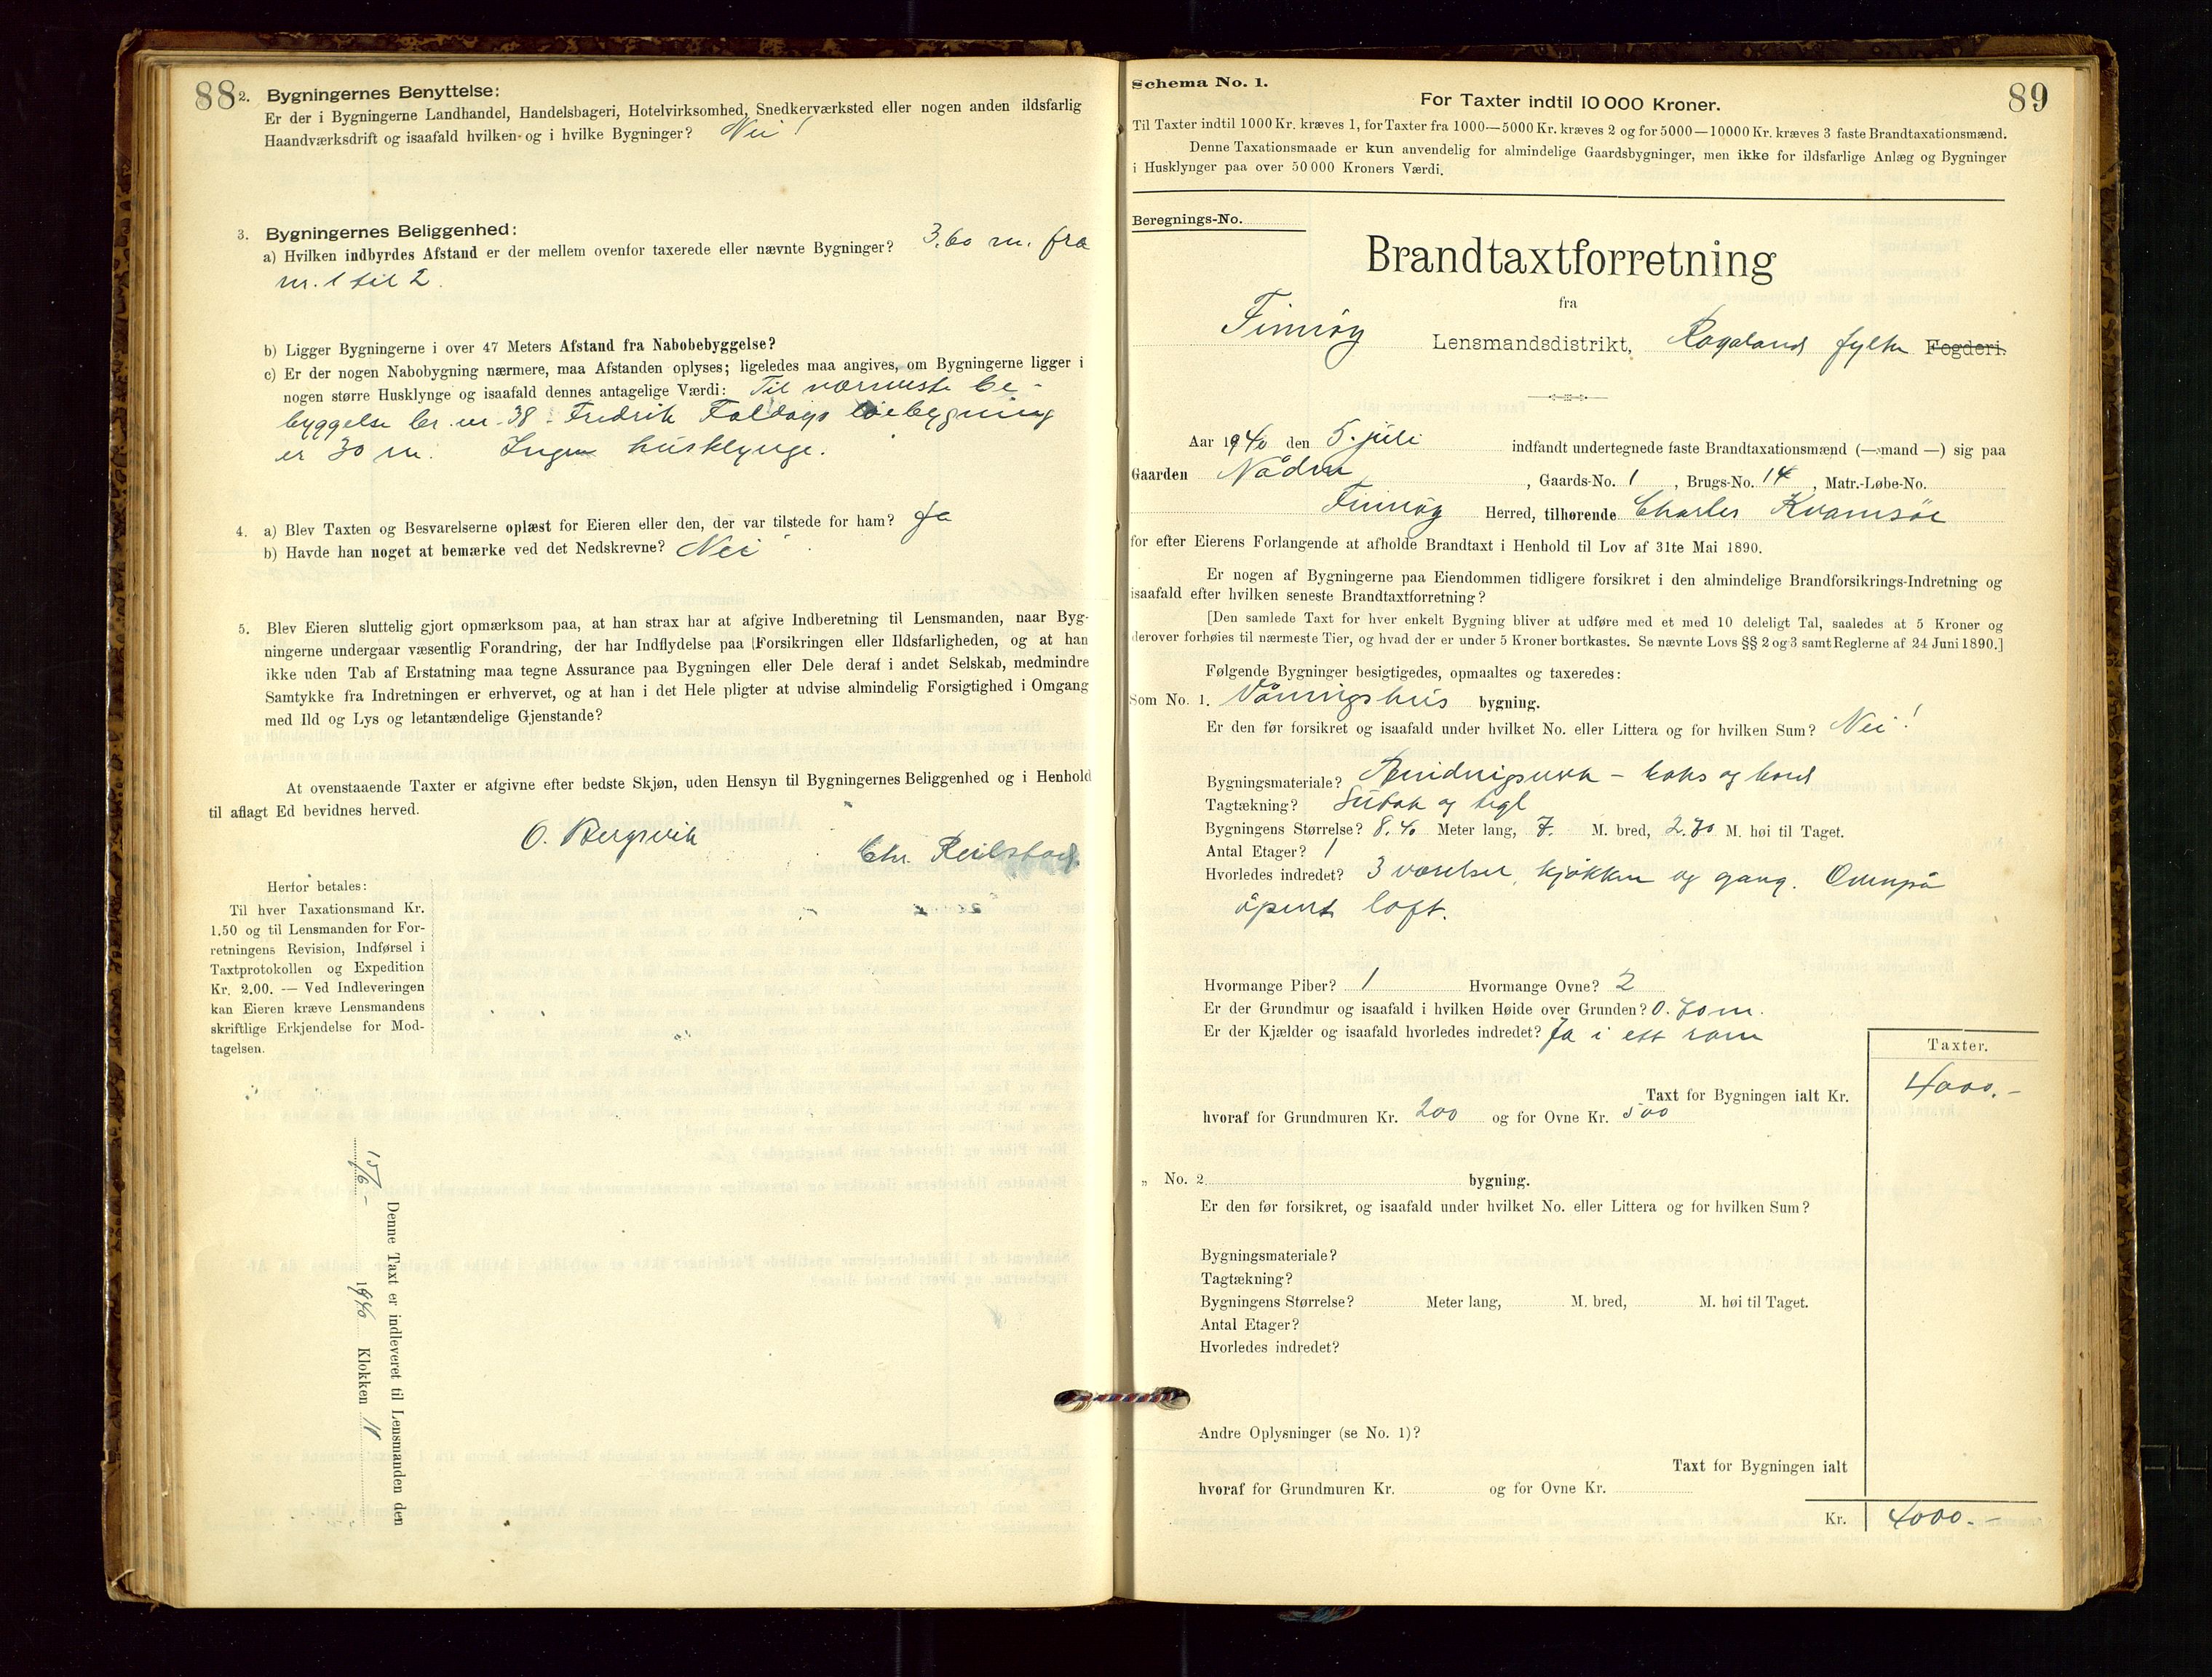 88
2. Bygningernes Benyttelse:
Er der i Bygningerne Landhandel, Handelsbageri, Hotelvirksomhed, Snedkerværksted eller nogen anden ildsfarlig
Haandværksdrift og isaafald hvilken og i hvilke Bygninger? Nei!
3. Bygningernes Beliggenhed:
a) Hvilken indbyrdes Afstand er der mellem ovenfor taxerede eller nævnte Bygninger? 3.60 m. fra
nr. 1 til 2.
b) Ligger Bygningerne i over 47 Meters Afstand fra Nabobebyggelse?
c) Er der nogen Nabobygning nærmere, maa Afstanden oplyses; ligeledes maa angives, om Bygningerne ligger i
nogen større Husklynge og isaafald dennes antagelige Værdi: Til nærmeste be-
byggelse br. nr. 38 Fredrik løebygning
er 30 m. Ingen husklynge.
4. a) Blev Taxten og Besvarelserne oplæst for Eieren eller den, der var tilstede for ham? Ja
b) Havde han noget at bemærke ved det Nedskrevne? Nei
5. Blev Eieren sluttelig gjort opmærksom paa, at han strax har at afgive Indberetning til Lensmanden, naar Byg-
ningerne undergaar væsentlig Forandring, der har Indflydelse paa Forsikringen eller Ildsfarligheden, og at han
ikke uden Tab af Erstatning maa tegne Assurance paa Bygningen eller Dele deraf i andet Selskab, medmindre
Samtykke fra Indretningen er erhvervet, og at han i det Hele pligter at udvise almindelig Forsigtighed i Omgang
med Ild og Lys og letantændelige Gjenstande?
At ovenstaaende Taxter er afgivne efter bedste Skjøn, uden Hensyn til Bygningernes Beliggenhed og i Henhold
til aflagt Ed bevidnes herved.
O. Bergsvik
Chr. Reilstad
Herfor betales:
Til hver Taxationsmand Kr.
1.50 og til Lensmanden for For-
retningens Revision, Indførsel i
Taxtprotokollen og Expedition
Kr. 2.00. — Ved Indleveringen
kan Eieren kræve Lensmandens
skriftlige Erkjendelse for Mod-
tagelsen.
Denne Taxt er indleveret til Lensmanden den
15/6 - 1940 Klokken 11
Schema No. 1.
89
For Taxter indtil 10 000 Kroner.
Til Taxter indtil 1000 Kr. kræves 1, for Taxter fra 1000—5000 Kr. kræves 2 og for 5000—10000 Kr. kræves 3 faste Brandtaxationsmænd.
Denne Taxationsmaade er kun anvendelig for almindelige Gaardsbygninger, men ikke for ildsfarlige Anlæg og Bygninger
i Husklynger paa over 50 000 Kroners Værdi.
Beregnings-No.
Brandtaxtforretning
fra
Finnøy Lensmandsdistrikt, Rogaland fylke Fogderi.
Aar 1940 den 5. juli indfandt undertegnede faste Brandtaxationsmænd (—mand—) sig paa
Gaarden Nåden, Gaards-No. 1, Brugs-No. 14, Matr.-Løbe-No.
Finnøy Herred, tilhørende Charles Kvamsøe
for efter Eierens Forlangende at afholde Brandtaxt i Henhold til Lov af 31te Mai 1890.
Er nogen af Bygningerne paa Eiendommen tidligere forsikret i den almindelige Brandforsikrings-Indretning og
isaafald efter hvilken seneste Brandtaxtforretning?
[Den samlede Taxt for hver enkelt Bygning bliver at udføre med et med 10 deleligt Tal, saaledes at 5 Kroner og
derover forhøies til nærmeste Tier, og hvad der er under 5 Kroner bortkastes. Se nævnte Lovs §§ 2 og 3 samt Reglerne af 24 Juni 1890.]
Følgende Bygninger besigtigedes, opmaaltes og taxeredes:
Som No. 1. Våningshus bygning.
Er den før forsikret og isaafald under hvilket No. eller Littera og for hvilken Sum? Nei!
Bygningsmateriale? - og bord
Tagtækning? Sutak og tegl
Bygningens Størrelse? 8.40 Meter lang, 7. M. bred, 2.70 M. høi til Taget.
Antal Etager? 1
Hvorledes indredet? 3 værelser, kjøkken og gang. Ovenpå
åpent loft.
Hvormange Piber? 1 Hvormange Ovne? 2
Er der Grundmur og isaafald i hvilken Høide over Grunden? 0.70 m.
Er der Kjælder og isaafald hvorledes indredet? Ja i ett rom
Taxter.
Taxt for Bygningen ialt Kr. 4000.-
hvoraf for Grundmuren Kr. 200 og for Ovne Kr. 500
„ No. 2 bygning.
Er den før forsikret, og isaafald under hvilket No. eller Littera og for hvilken Sum?
Bygningsmateriale?
Tagtækning?
Bygningens Størrelse? Meter lang, M. bred, M. høi til Taget.
Antal Etager?
Hvorledes indredet?
Andre Oplysninger (se No. 1)?
Taxt for Bygningen ialt
hvoraf for Grundmuren Kr. og for Ovne Kr.
Kr. 4000.-